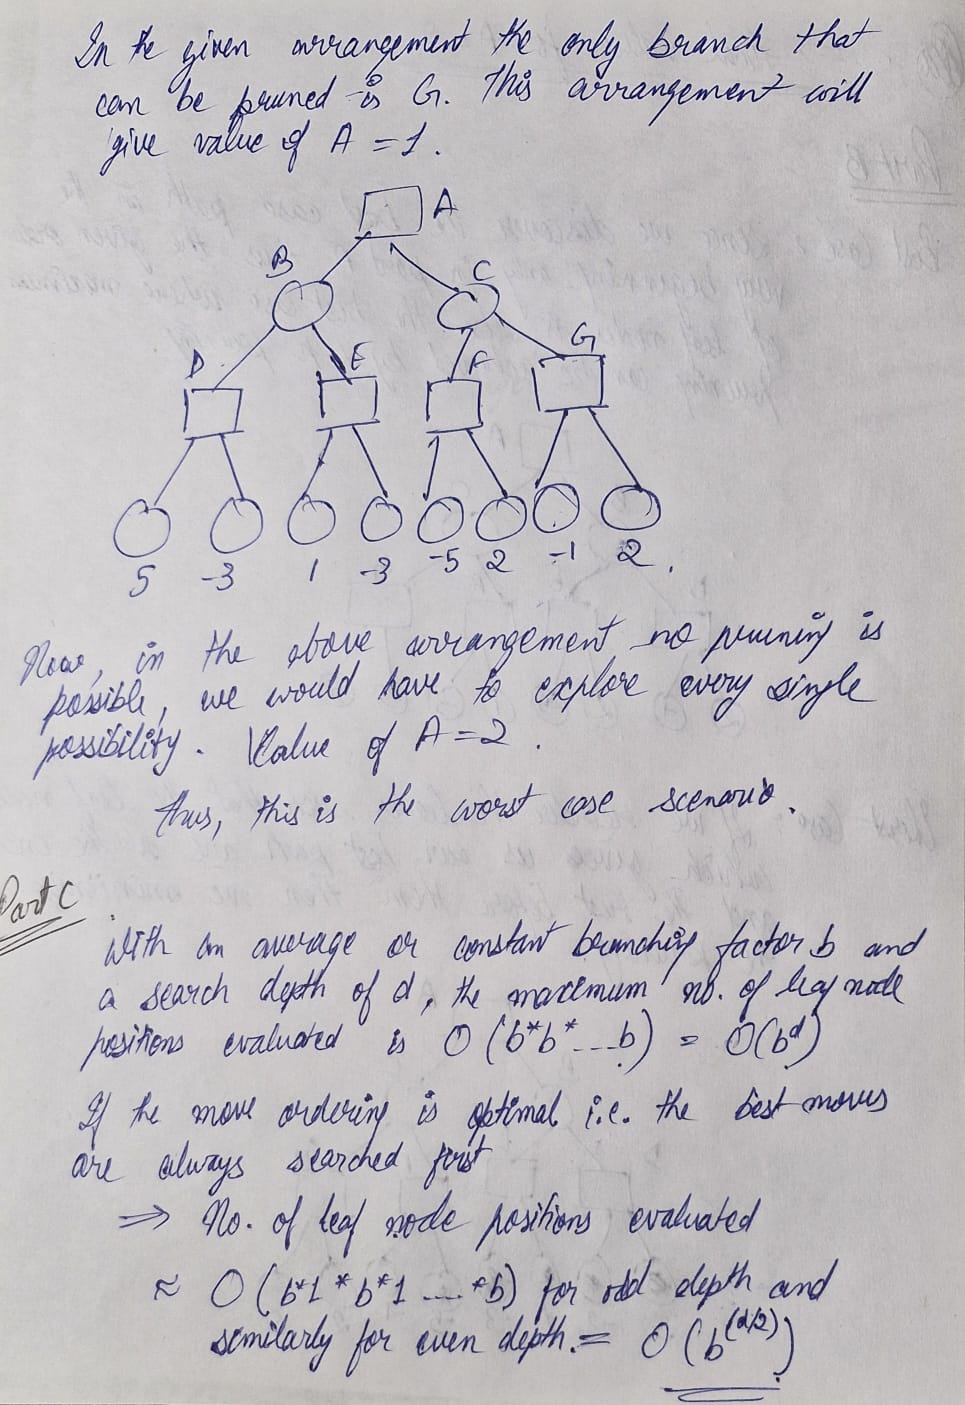 In the given arrangement the only branch that
can be pruned is G. This arrangement will
give value of A = 1.
A
B C
D E F G
5 -3 1 -3 -5 2 -1 2.
Now, in the above arrangement no pruning is
possible, we would have to explore every single
possibility. Value of A = 2.
Thus, this is the worst case scenario.
Part C
With an average or constant branching factor b and
a search depth of d, the maximum no. of leaf node
positions evaluated is O (b*b*...b) = O(b^d)
If the move ordering is optimal i.e. the best moves
are always searched first
⇒ No. of leaf node positions evaluated
≈ O (b*1*b*1 ....*b) for odd depth and
similarly for even depth. = O (b^(d/2))